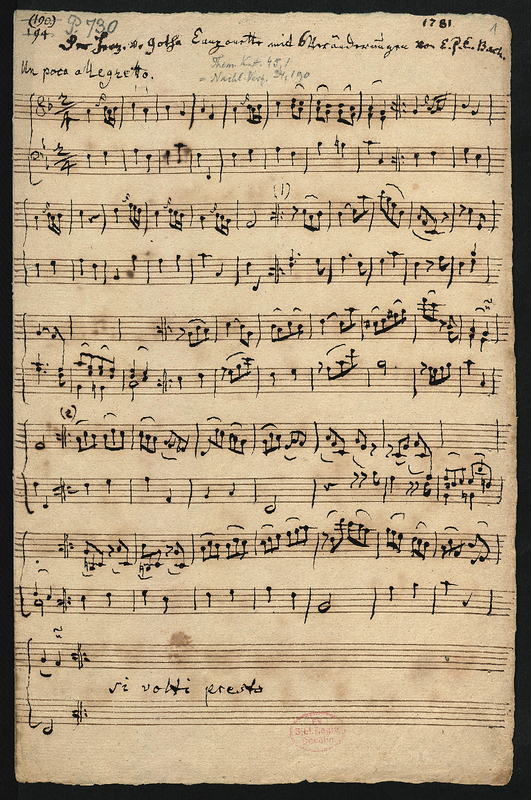 (190) P. 730 1781 1
194.
Der Herz. v. Gotha Canzonette mit 6 Veränderungen von C. P. E. Bach.
Un poco allegretto.
Them. Kat. 45,1
= Nachl. Verz. 24, 190
(1)
(2)
si volti presto